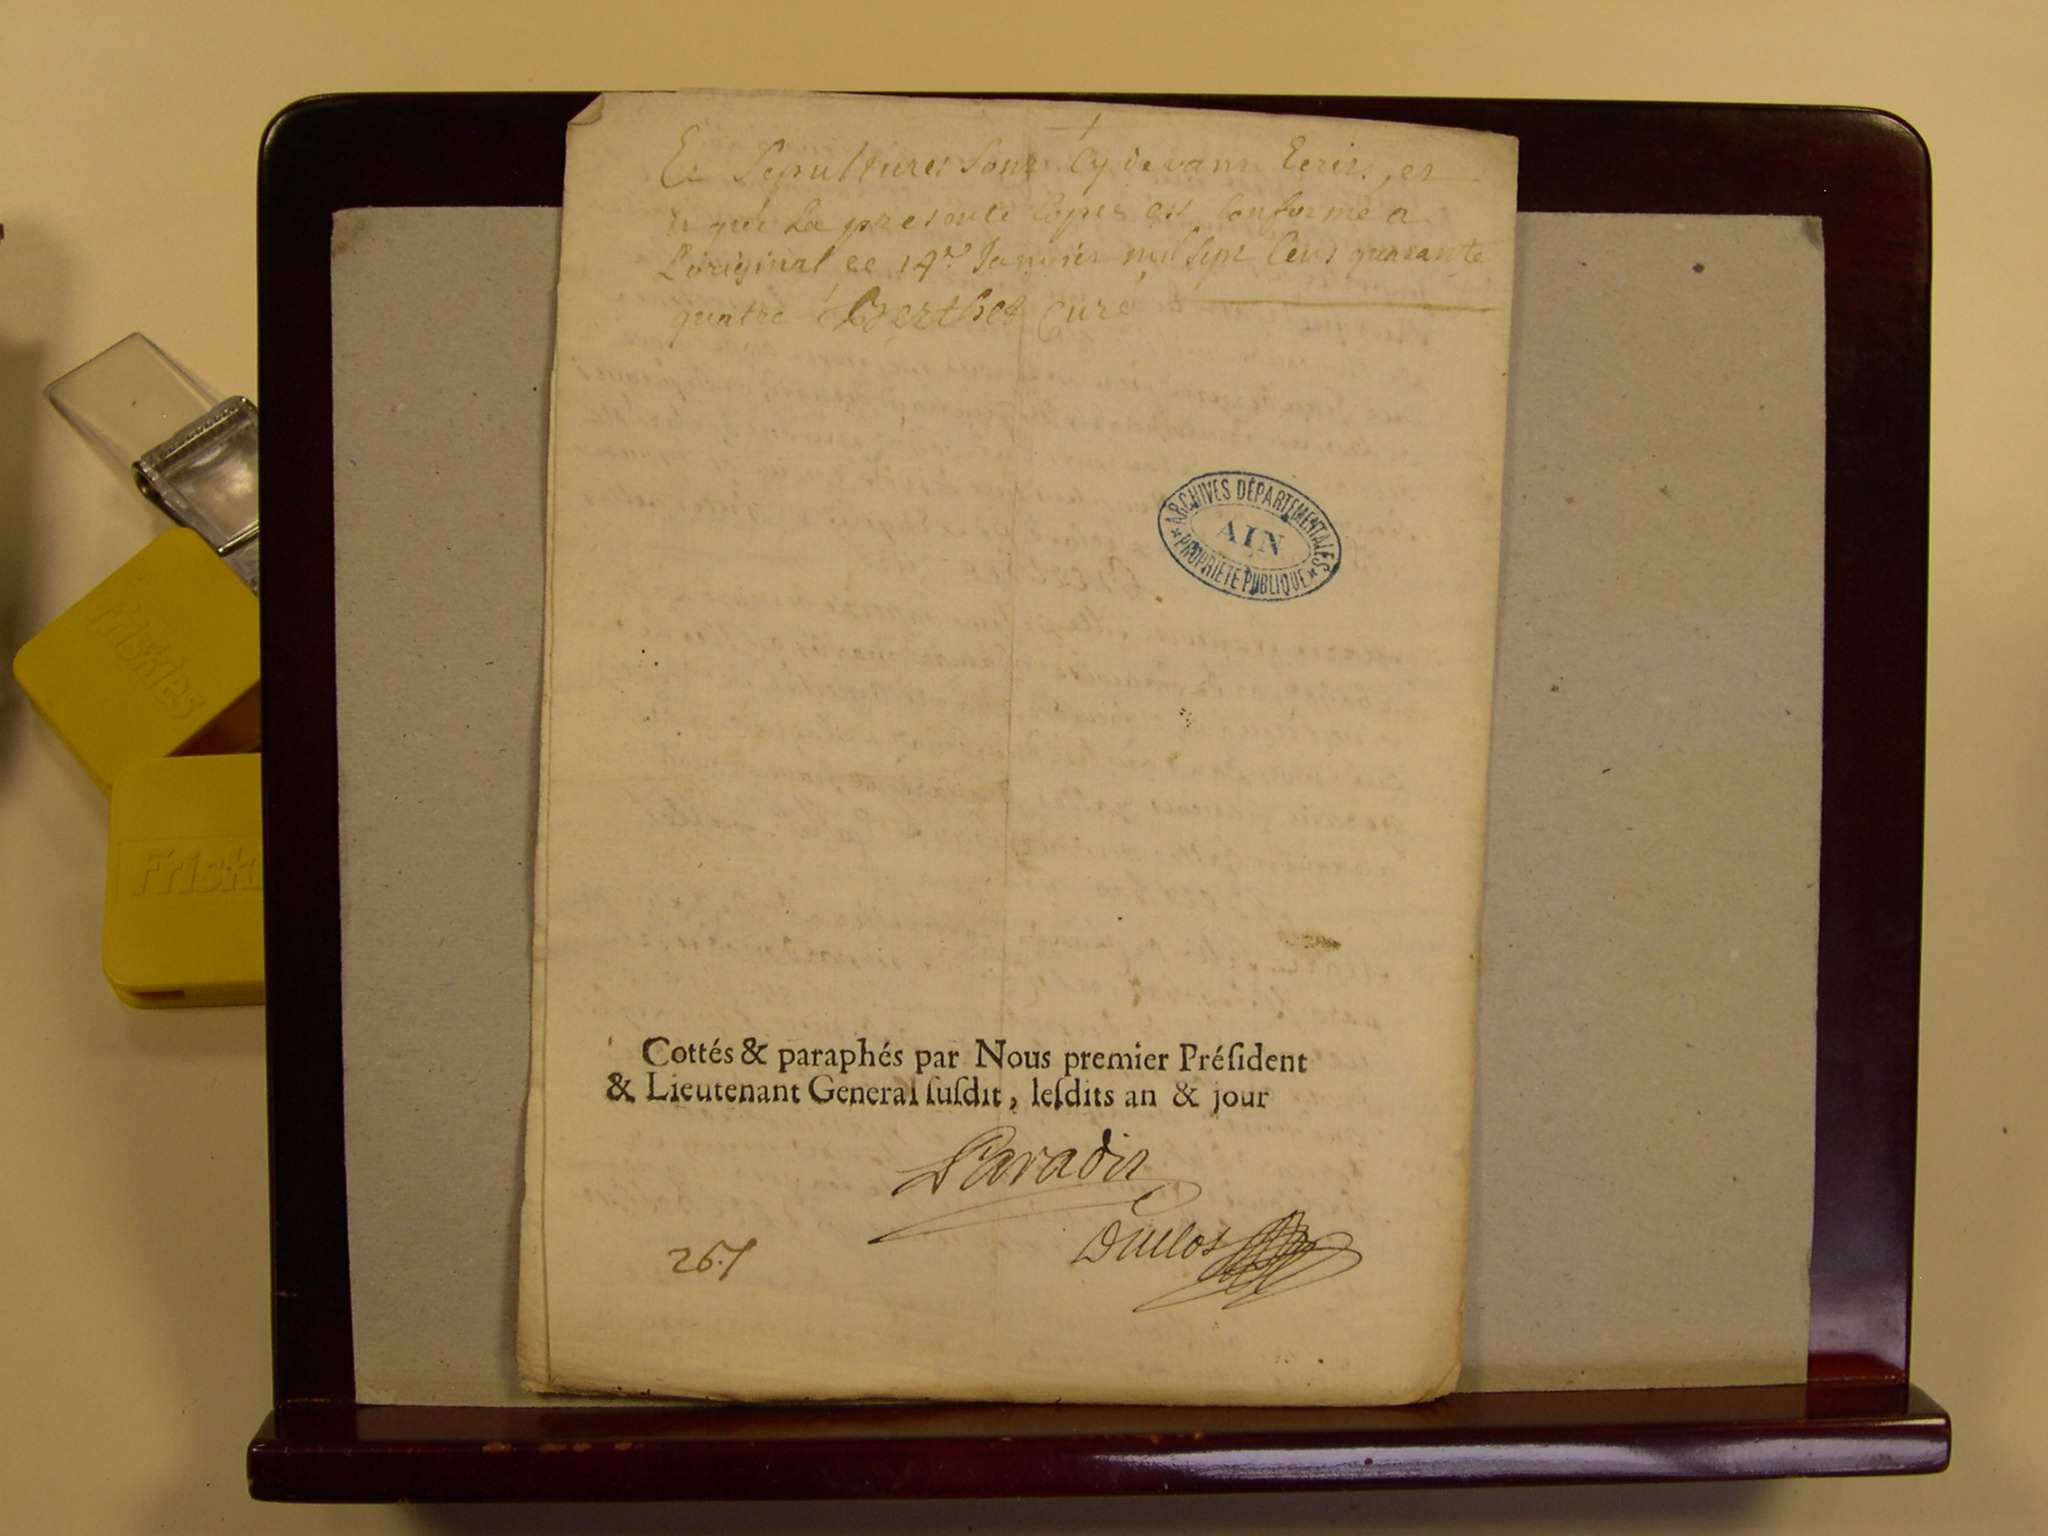 Et Sepultures sont Cy devant Ecris, et
que la presente Copie est Conforme a
L'original ce 14e Janvier mil sept Cens quarante
quatre Berthet Curé
ARCHIVES DÉPARTEMENTALES
AIN
* PROPRIÉTÉ PUBLIQUE *
Cottés & paraphés par Nous premier Préſident
& Lieutenant General ſuſdit, leſdits an & jour
Paradis
Duclos
26.
Friskies
Friski